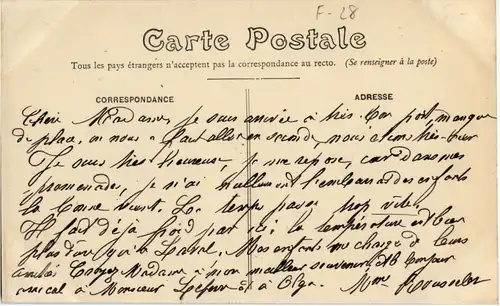 F-28
Carte Postale
Tous les pays étrangers n'acceptent pas la correspondance au recto. (Se renseigner à la poste)
CORRESPONDANCE
ADRESSE
Chère Madame, je suis arrivée à très bon port, manque
de place, on nous a fait aller en seconde, nous étions très bien
Je suis très heureuse, je me repose, car dans mes
promenades, je n'ai nullement l'embarras des enfants
la bonne suit. Le temps passe trop vite.
Il fait déjà froid par ici, la température est bien
plus dure qu'à Laval. Mes enfants me charge de leurs
amitiés Croyez Madame à mon meilleur souvenir,
amical à Monsieur et à Olga. Mme Rousseler